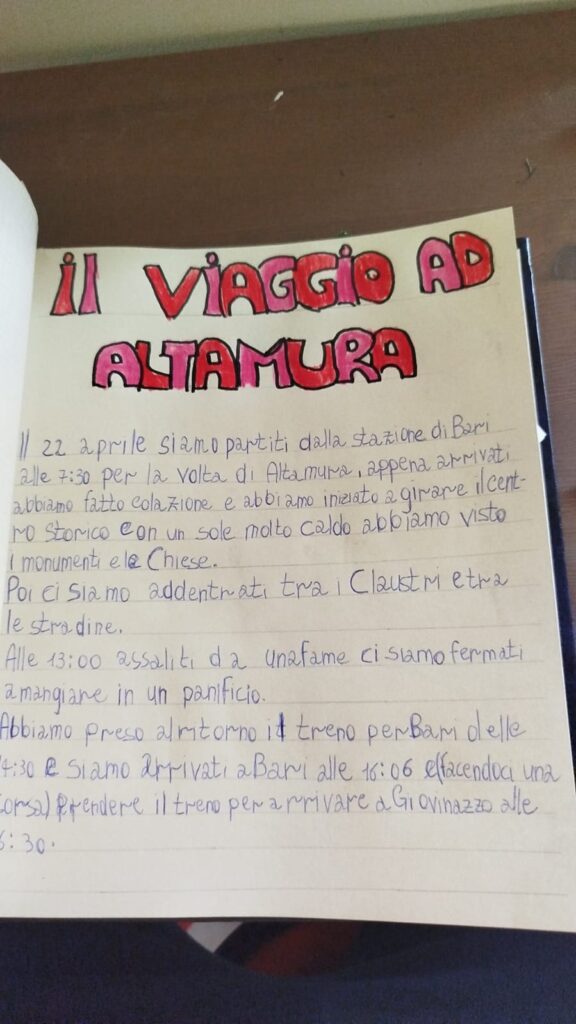 il VIAGGIO AD
ALTAMURA
Il 22 aprile siamo partiti dalla stazione di Bari
alle 7:30 per la volta di Altamura, appena arrivati
abbiamo fatto colazione e abbiamo iniziato a girare il cent-
ro storico e con un sole molto caldo abbiamo visto
i monumenti e le Chiese.
Poi ci siamo addentrati tra i Claustri e tra
le stradine.
Alle 13:00 assaliti da una fame ci siamo fermati
a mangiare in un panificio.
Abbiamo preso al ritorno il treno per Bari delle
4:30 e siamo arrivati a Bari alle 16:06 e (facendoci una
corsa) prendere il treno per arrivare a Giovinazzo alle
6:30.